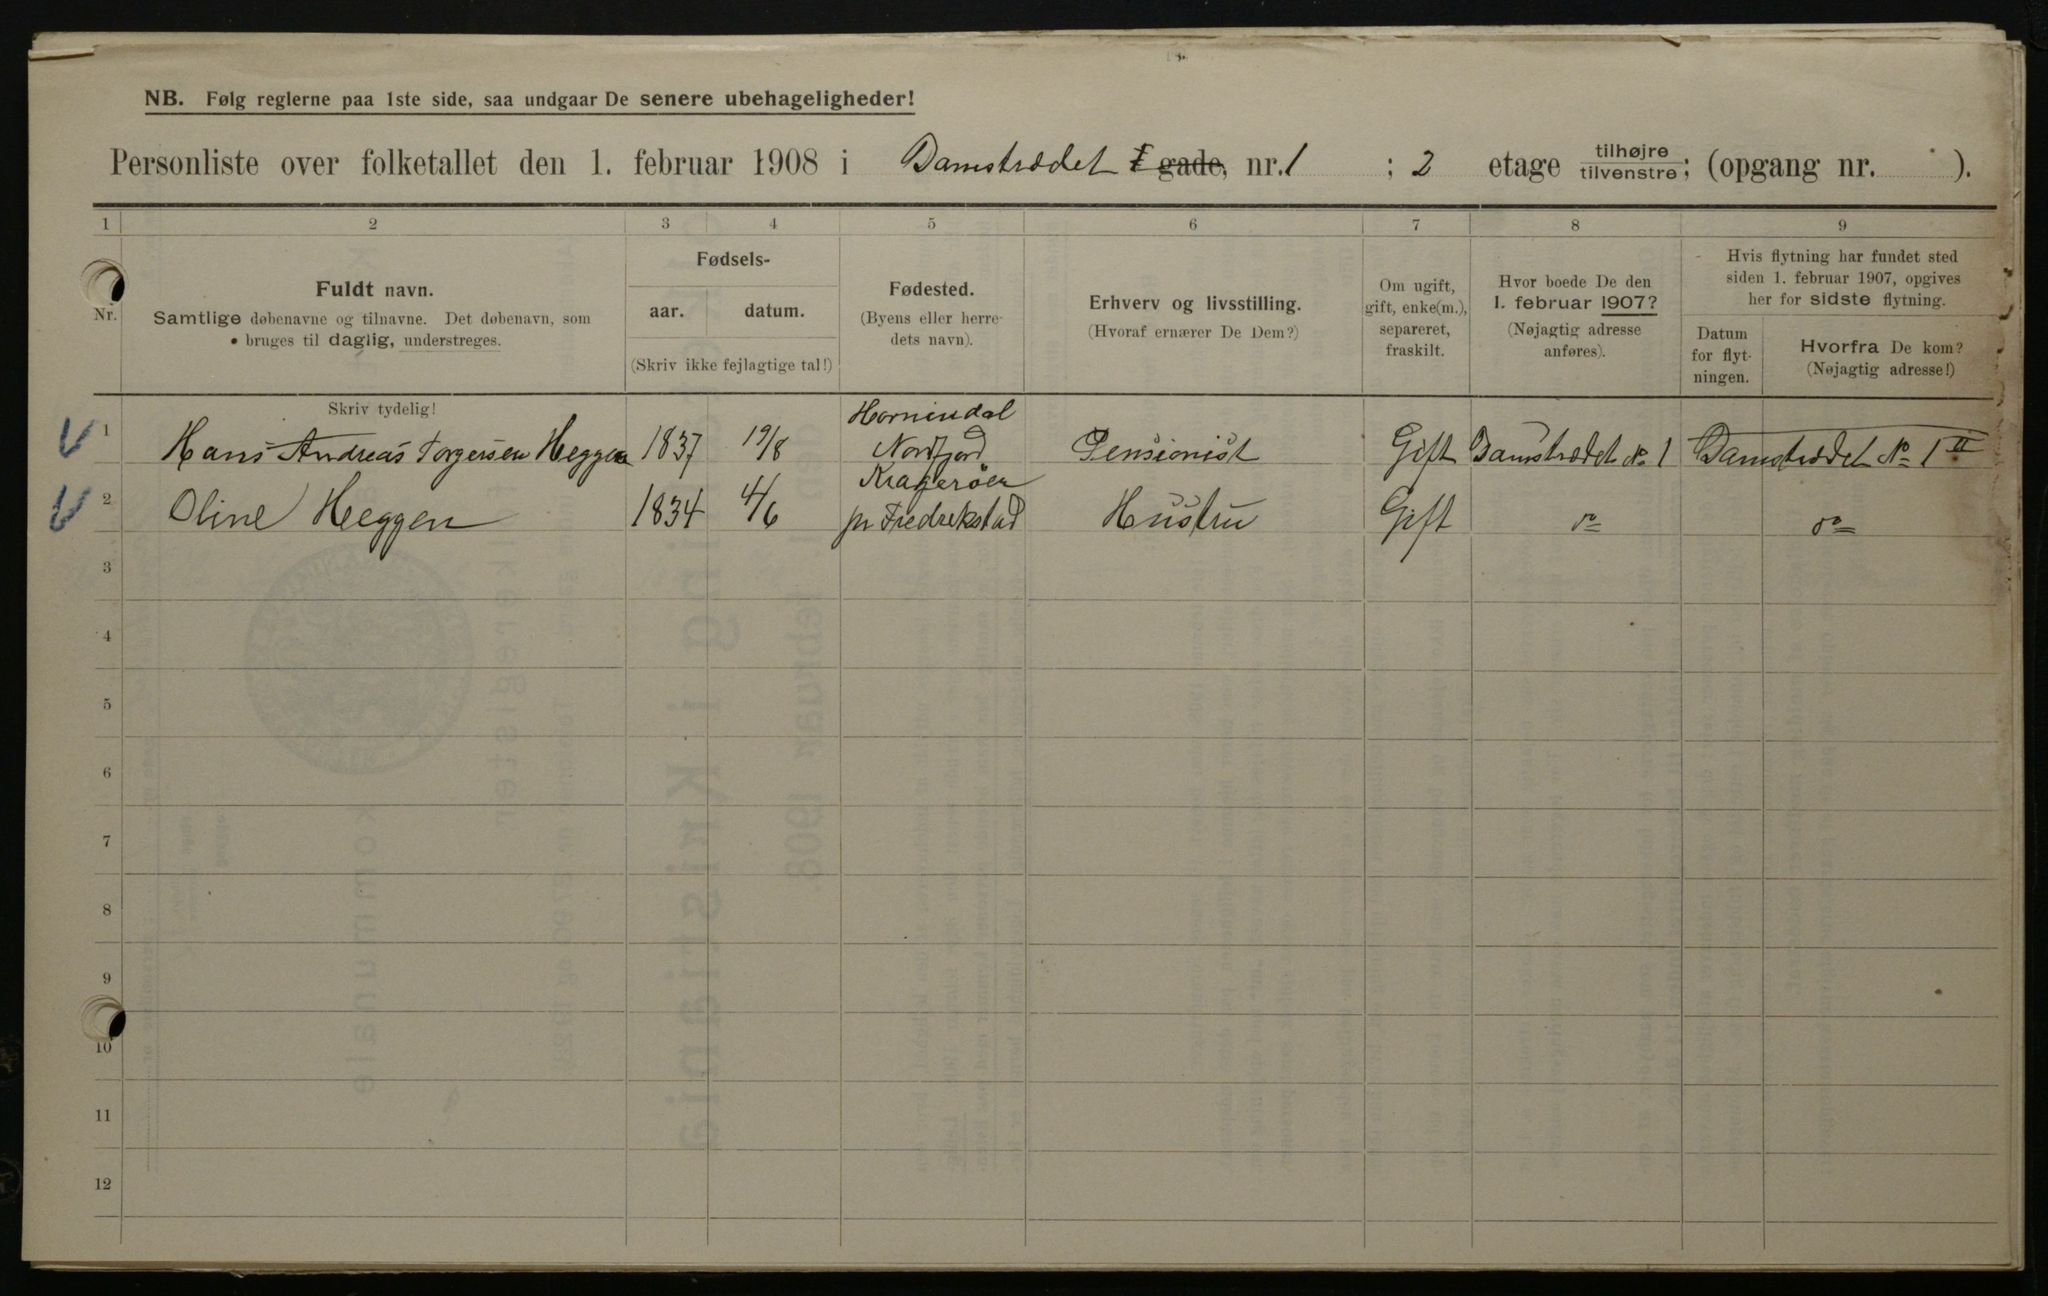 NB. Følg reglerne paa 1ste side, saa undgaar De senere ubehageligheder!
Personliste over folketallet den 1. februar 1908 i Damstrædet gade, nr. 1 ; 2 etage tilhøjre tilvenstre; (opgang nr. ).
1 2 3 4 5 6 7 8 9
Nr.
Fuldt navn.
Samtlige døbenavne og tilnavne. Det døbenavn, som
bruges til daglig, understreges.
Fødsels-
aar. datum.
(Skriv ikke fejlagtige tal!)
Fødested.
(Byens eller herre-
dets navn).
Erhverv og livsstilling.
(Hvoraf ernærer De Dem?)
Om ugift,
gift, enke(m.),
separeret,
fraskilt.
Hvor boede De den
1. februar 1907?
(Nøjagtig adresse
anføres).
Hvis flytning har fundet sted
siden 1. februar 1907, opgives
her for sidste flytning.
Datum
for flyt-
ningen.
Hvorfra De kom?
(Nøjagtig adresse!)
Skriv tydelig!
1 Hans Andreas Torgersen Heggen 1837 19/8 Hornindal Nordfjord Pensionist Gift Damstrædet No 1 Damstrædet No 1 II
2 Oline Heggen 1834 4/6 Kragerøen pr Fredrekstad Hustru Gift do do
3
4
5
6
7
8
9
10
11
12